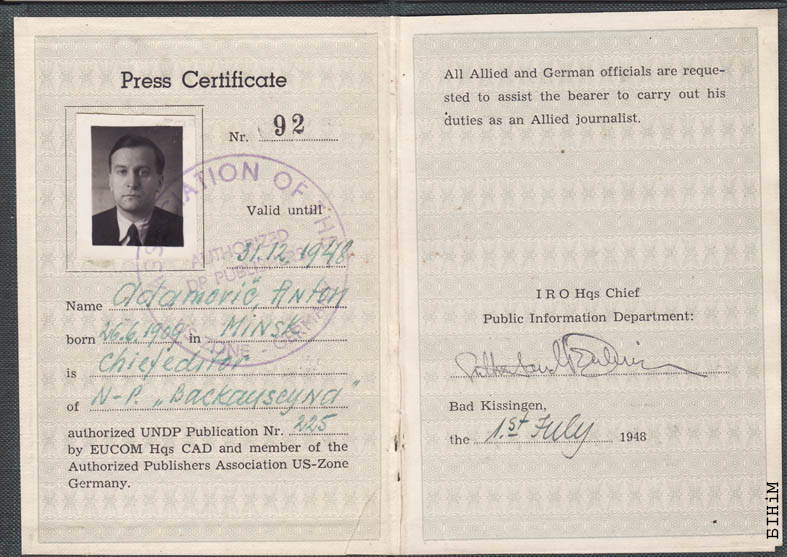 Press Certificate
Nr. 92
Valid untill
31.12.1948.
Name Adamovič, Anton
born 26.6.1909 in Minsk
is Chiefeditor
of N-P. „Backauscyna"
authorized UNDP Publication Nr. 225
by EUCOM Hqs CAD and member of the
Authorized Publishers Association US-Zone
Germany.
ATION OF THE
AUTHORIZED
DP PUBLISHERS
ZONE - GERMANY
All Allied and German officials are reque-
sted to assist the bearer to carry out his
duties as an Allied journalist.
IRO Hqs Chief
Public Information Department:
Bad Kissingen,
the 1.st July 1948
BIHiM